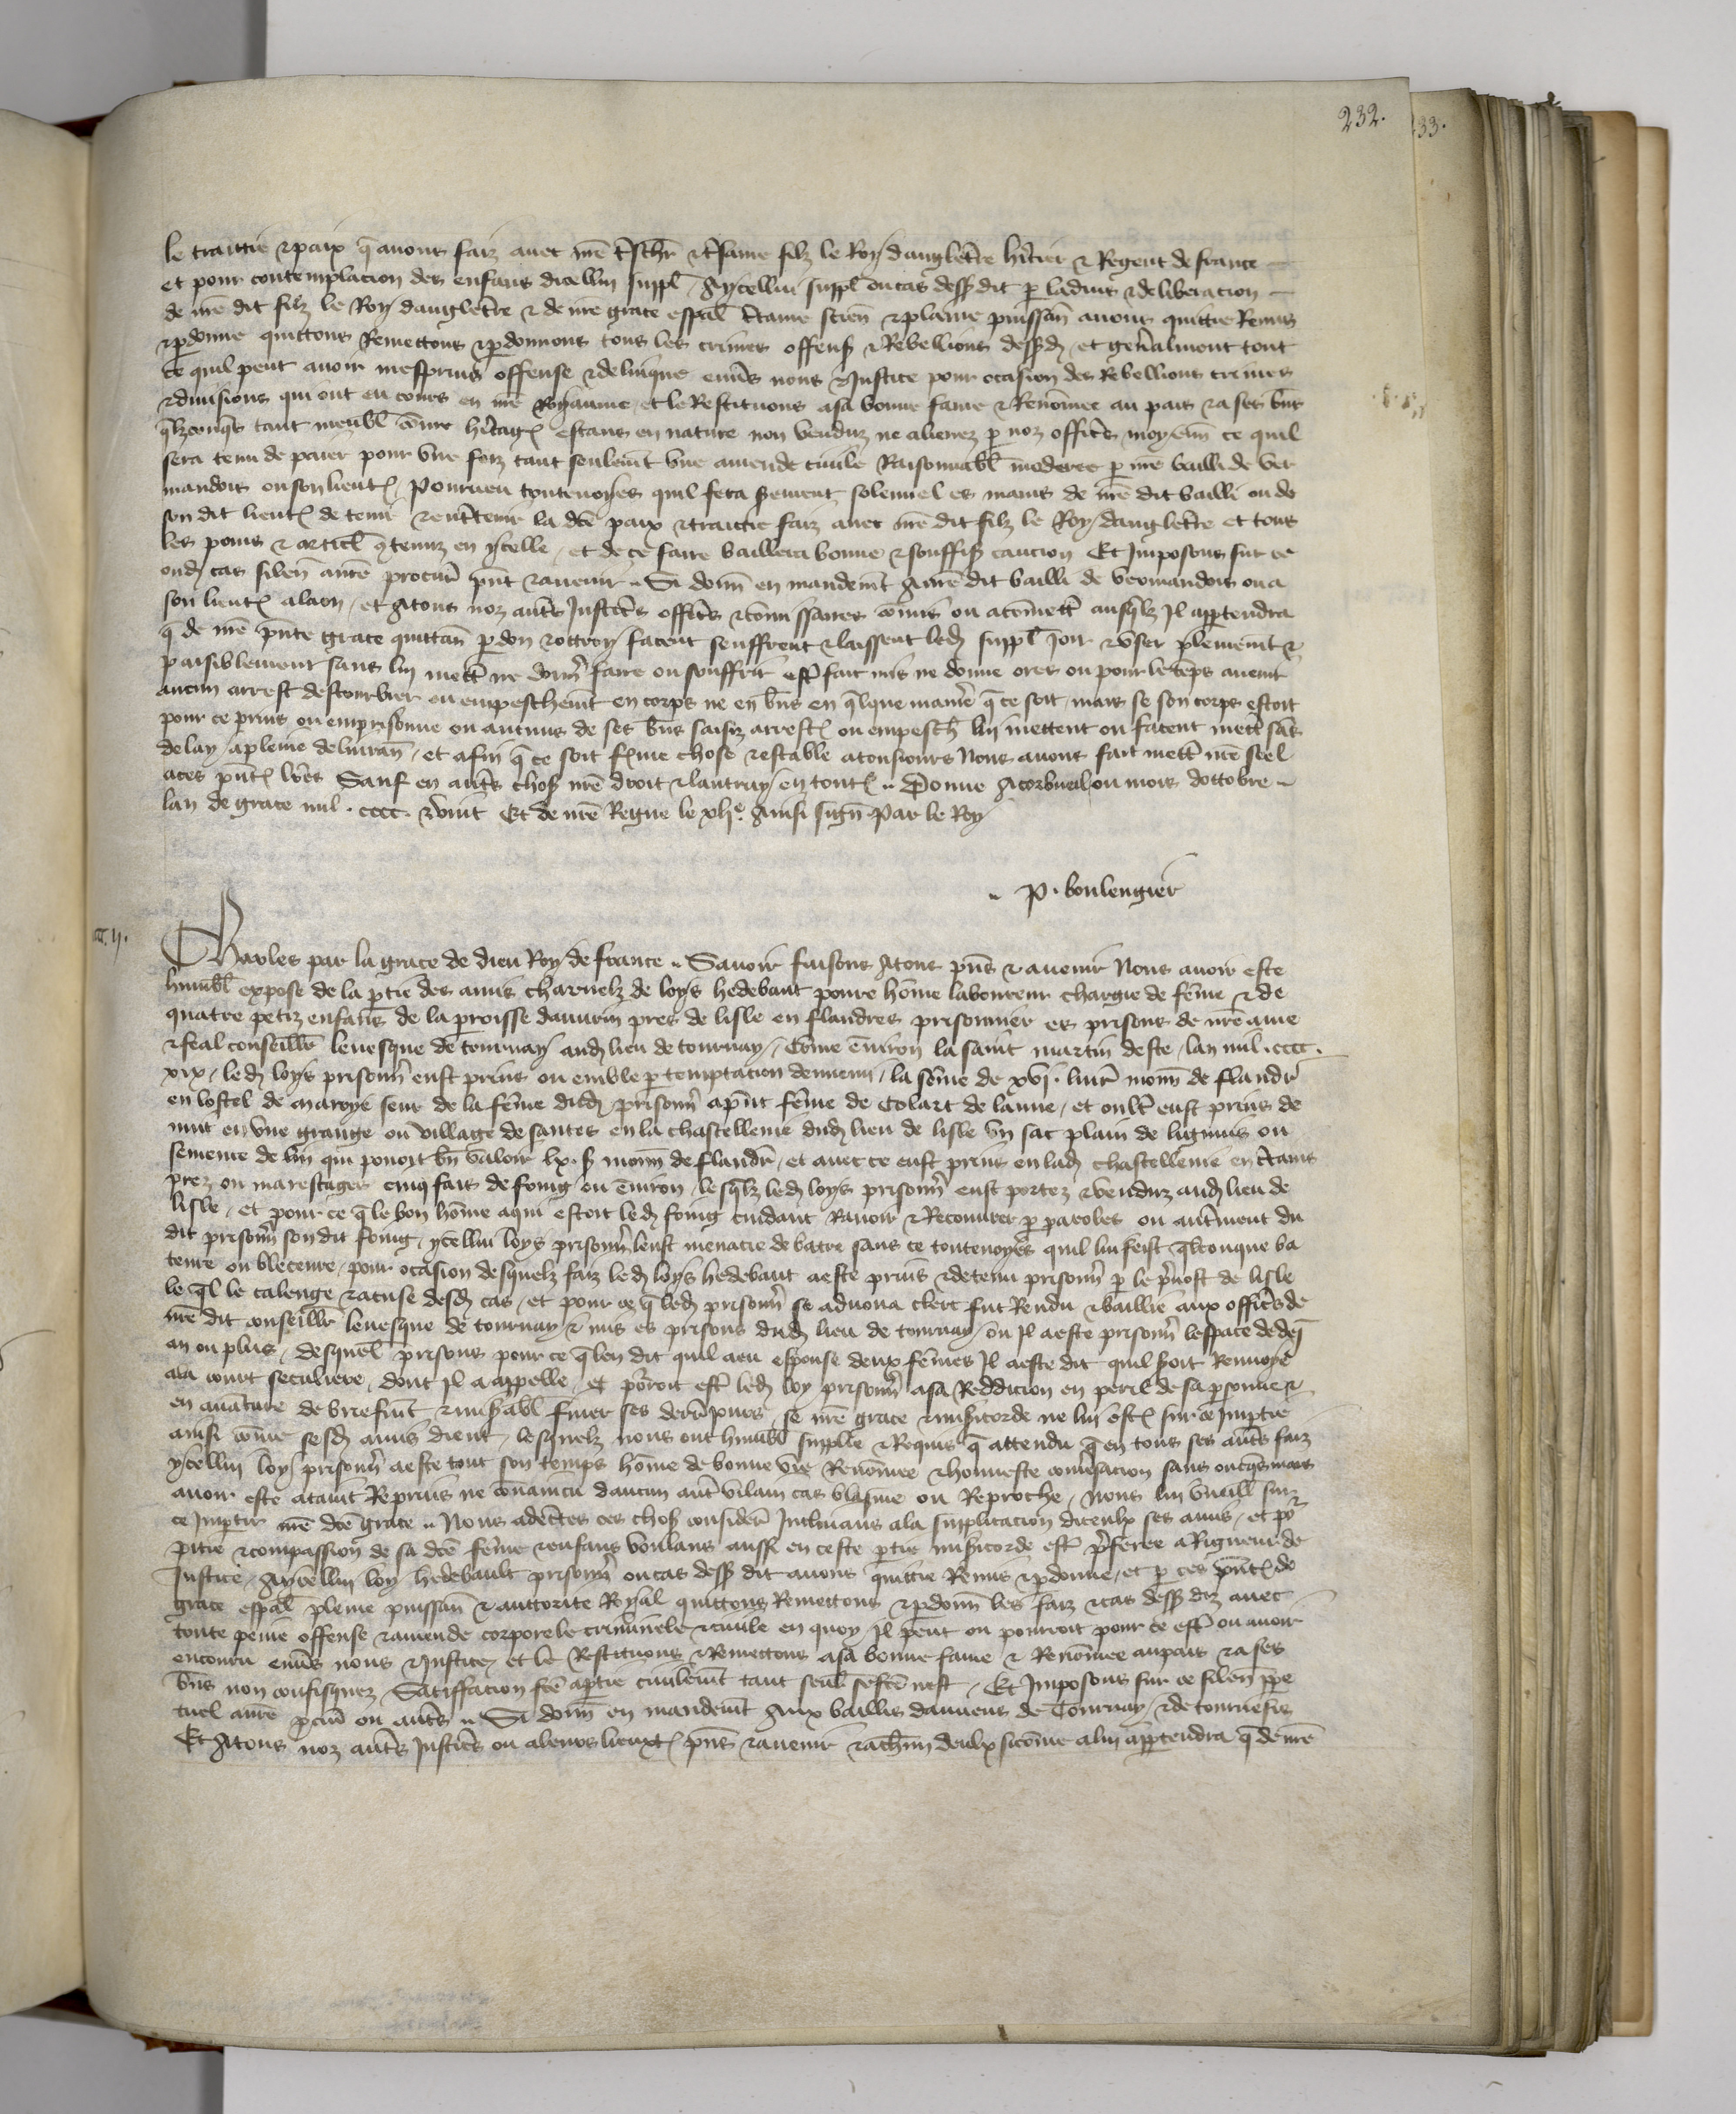 232.
33.
le traittie & paix q̄ auons faiz auec nr̄e t̃schr̄ & t̃same filz le Roy danglet̃re hr̄itier & Regent de france
et pour contemplacion des enfans dicellui suppl̄ / A ycellui suppl̄ ou cas dessß dit p ladius & deliberacion
de nr̄e dit filz le Roy danglet̃re & de nr̄e grace esp̄al c̃taine scien̄ & plaine puissan̄ auons quittie Remis
& p̱donne quittons Remettons & p̱donnons tous les crimes offenß & Rebellions dessßd̄ / et gen̄alment tout
ce quil peut auoir mesprins offense & delinque enūs nous & Justice pour ocasion des Rebellions crimes
& diuisions qui ont eu cours en nr̄e Royaume / et le Restituons a sa bonne fame & Renōmee au pais & a ses bn̄s
q̄lzconq̄s tant meubl̄ cōme hr̄itagꝭ estans en nature non venduz ne alienez p noz offic̄s / moyēn̄ ce quil
sera tenu de paier pour vne foiz tant seulem̄t vne amende ciuile Raisonnabl̄ moderee p nr̄e bailli de ver
mandois ou son lieutꝭ / Pourueu toutenoyes quil fera s̃ement solennel es mains de nr̄e dit bailli ou de
son dit lieutꝭ de tenir & entt̃enir la dc̄e paix & traictie faiz auec nr̄e dit filz le Roy danglet̃re et tous
les poins & articl̄ ꝯtenuz en ycelle / et de ce faire baillera bonne & souffisß caucion Et Imposons sur ce
oud̄ cas silen̄ a nr̄e procur̄ pn̄t & auenir .. Si donn̄ en mandem̄t A nr̄e dit bailli de vermandois ou a
son lieutꝭ a laon / et A tous noz aut̃s Justic̄s offic̄s & cōmissaires cōmis ou a cōmett̃ ausq̄lz Il app̱tendra
q̄ de nr̄e pn̄te grace quittan̄ p̱don & ottroy facent seuffrent & laissent led̄ suppl̄ Joir & vser plenem̄t &
paisiblement sans lui mett̃ ne donn̄ faire ou souffrir est̃ fait mis ne donne ores ou pour le tēps auenir
aucun arrest destourbier ou empeschem̄t en corps ne en bn̄s en q̄lque manie̊ q̄ ce soit / mais se son corps estoit
pour ce prins ou emprisonne ou aucuns de ses bn̄s saisiz arrestꝭ ou empesch̄ lui mettent ou facent mett̃ sās
delay / a pleine deliuran̄ / et afin q̄ ce soit f̃me chose & estable a tousiours Nous auons fait mett̃ nr̄e seel
a ces pn̄tꝭ lr̄es Sauf en aut̃s choß nr̄e droit & lautruy en toutꝭ .. Donne A corbueil ou mois doctobre
lan de grace mil . cccc . & vint Et de nr̄e Regne le xlj͏ͤ. Ainsi sign̄ Par le Roy
.. P. boulengier
Charles par la grace de dieu Roy de france .. Sauoir faisons A tous pn̄s & auenir Nous auoir este
humbl̄ expose de la p̱tie des amis charnelz de loys hedebaut poure hōme laboureur chargie de fēme & de
quatre petiz enfans de la p̱roisse dauurin pres de lisle en flandres prisonnier es prisons de nr̄e ame
& feal conseill̄r leuesque de tournay aud̄ lieu de tournay / Cōme enuiron la saint martin deste / lan mil . cccc .
xix / led̄ loys prisonn̄ eust prins ou emble p temptacion dennemi / la sōme de xvj . liur̄ monn̄ de flandr̄
en lostel de maroye seur de la fēme dud̄ prisonn̄ a p̄nt fēme de Colart de lanne / et oult̃ eust prins de
nuit en vne grange ou village de santes en la chastellenie dud̄ lieu de lisle vn sac plain de lignuis ou
semence de lin qui pouoit bn̄ valoir lx . ß monn̄ de flandr̄ / et auec ce eust prins en lad̄ chastellenie en c̃tains
prez ou marescages cinq fais de foing ou enuiron / lesq̄lz led̄ loys prisonn̄ eust portez & venduz aud̄ lieu de
lisle / et pour ce q̄ le bon hōme a qui estoit led̄ foing cuidant Rauoir & Recouurer p paroles ou aut̃ment du
dit prisonn̄ son dit foing / ycellui loys prisonn̄ leust menacie de batre sans ce toutenoyes quil lui feist q̄lconque ba
teure ou bleceure / pour ocasion desquelz faiz led̄ loys hedebaut a este prins & detenu prisonn̄ p le pr̄uost de lisle
le q̄l le calenge & acuse desd̄ cas / et pour ce q̄ led̄ prisonn̄ se aduoua clerc fut Rendu & baillie aux offic̄s de
nr̄e dit conseill̄r leuesque de tournay & mis es prisons dud̄ lieu de tournay / ou Il a este prisonn̄ lespace de demi
an ou plus / desquel̄ prisons pour ce q̄ len dit quil a eu espouse deux fēmes Il a este dit quil soit Renuoye
a la court seculiere / dont Il a appelle / et pōrroit est̃ led̄ loy prisonn̄ a sa Reddicion en peril de sa p̱sonne &
en auāture de briefm̄t & miß̃abl̄ finer ses derr̄ jours / se nr̄e grace & miß̃icorde ne lui estꝭ sur ce Imp̱tie
ainsi cōme sesd̄ amis dient / lesquelz nous ont humbl̄ supplie & Requis q̄ attendu q̄ en tous ses aut̃s faiz
ycellui loy prisonn̄ a este tout son temps hōme de bonne vie Renōmee & honneste conuersacion sans oncq̄s mais
auoir este ataint Reprins ne cōuaincu daucun aut̃ vilain cas blasme ou Reproche / nous lui vueill̄ sur
ce Imp̱tir nr̄e dc̄e grace .. Nous adc̄tes ces choß consider̄ Inclinans a la supplicacion diceulx ses amis / et pō
pitie & compassion de sa dc̄e fēme & enfans voulans aussi en ceste p̱tie miß̃icorde est̃ pr̄feree a Rigueur de
Justice / A ycellui loy hedebault prisonn̄ ou cas dessß dit auons quittie Remis & p̱donne / et p ces pn̄tꝭ de
grace esp̄al pleine puissan̄ & auctorite Royal quittons Remettons & p̱donn̄ les faiz & cas dessß diz auec
toute peine offense & amende corporele criminele & ciuile en quoy Il peut ou pourroit pour ce est̃ ou auoir
encouru enūs nous & Justice / et le Restituons & Remettons a sa bonne fame & Renōmee au pais & a ses
bn̄s non confisquez / Satiffacion fc̄e a p̱tie ciuilem̄t tant seul̄ se fc̄e nest / Et Imposons sur ce silen̄ p̱pe
tuel a nr̄e p̱cur̄ ou aut̃s .. Si donn̄ en mandem̄t Aux baillis damiens de Tournay / & de tournesis
Et A tous noz aut̃s Justic̄s ou a leurs lieuxtꝭ pn̄s & auenir & a ch̄un deulx sicōme a lui app̱tendra q̄ de nr̄e